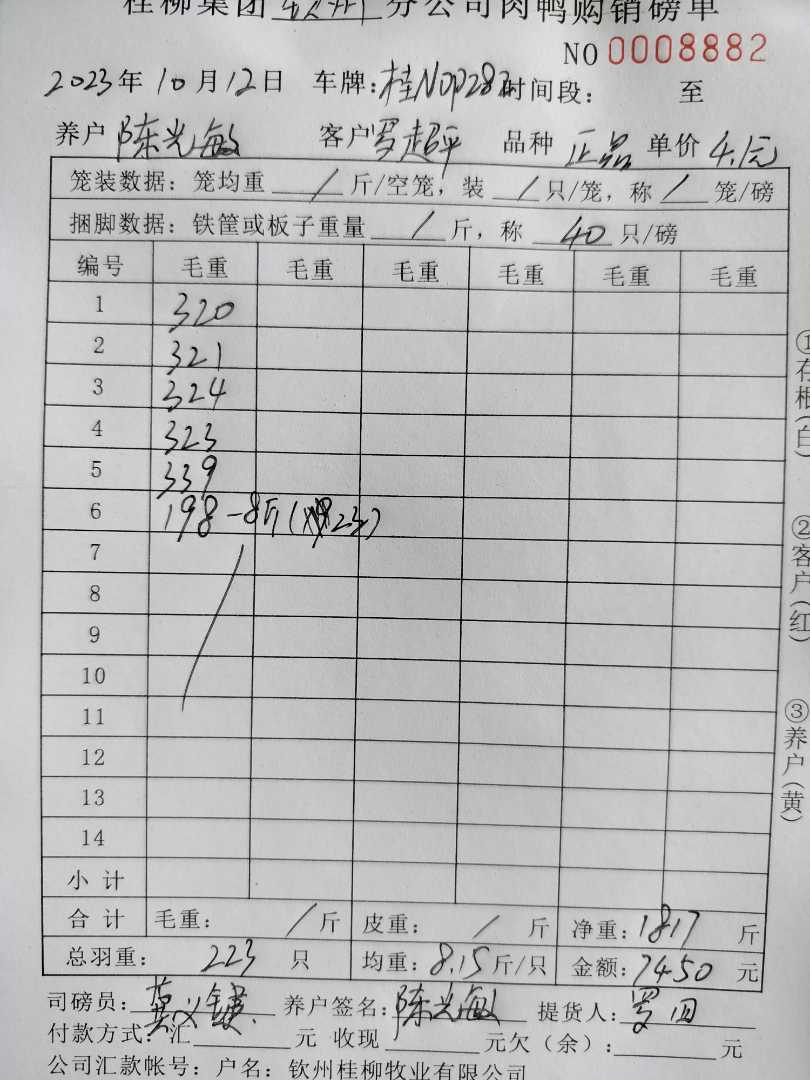 桂柳集团钦州分公司肉鸭购销磅单
NO 0008882
2023年10月12日 车牌:桂N0P287 时间段: 至
养户 陈光敏 客户 罗超平 品种 正品 单价 4.1元
笼装数据: 笼均重 / 斤/空笼, 装 / 只/笼, 称 / 笼/磅
捆脚数据: 铁筐或板子重量 / 斤, 称 40 只/磅
编号 毛重 毛重 毛重 毛重 毛重 毛重
1 320
2 321
3 324
4 323
5 339
6 198-8斤( 23)
7
8
9
10
11
12
13
14
小计
合计 毛重: / 斤 皮重: / 斤 净重: 1817 斤
总羽重: 223 只 均重: 8.15 斤/只 金额: 7450 元
司磅员: 莫义 养户签名: 陈光敏 提货人: 罗四
付款方式: 汇 元 收现 元欠(余): 元
公司汇款帐号: 户名: 钦州桂柳牧业有限公司
①存根(白)
②客户(红)
③养户(黄)